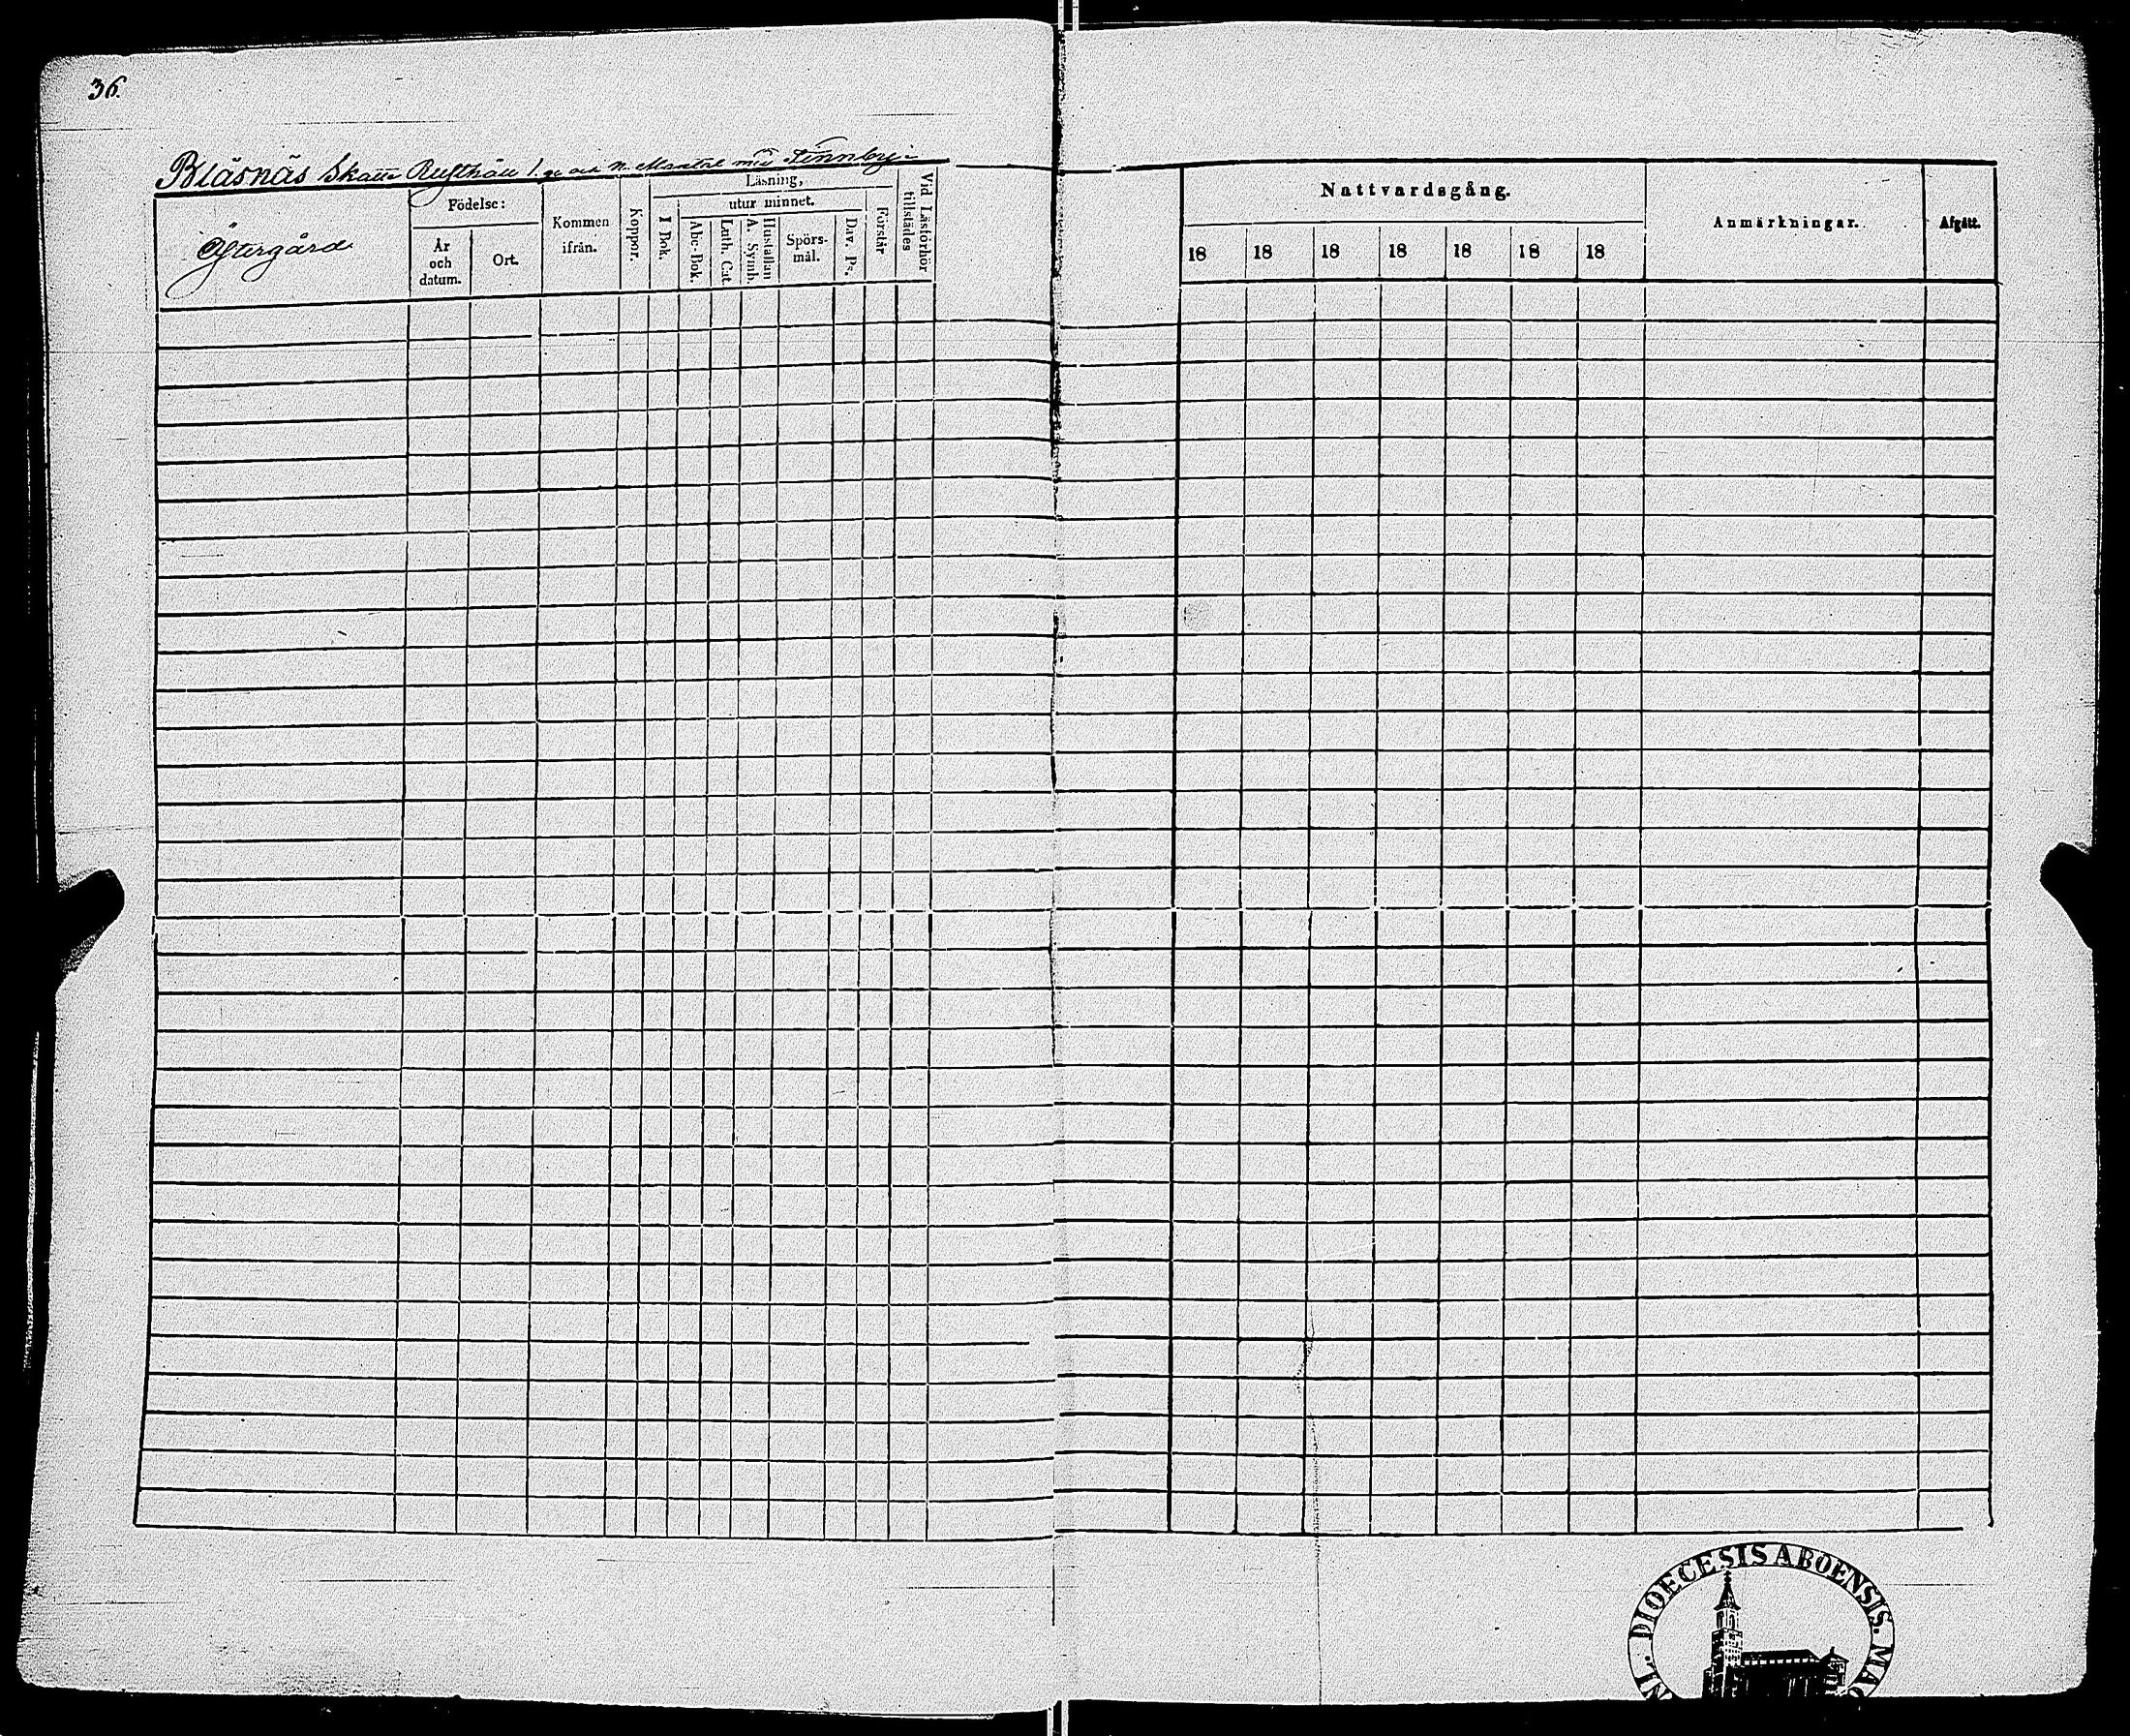 36.
Bläsnäs Skatte Rusthåll 1. Mantal med Finnby
Östergård
Födelse:
År
och
datum.
Ort.
Kommen
ifrån.
Koppor.
Läsning,
I Bok.
utur minnet.
Abc-Bok.
Luth. Cat.
Hustaflan
A. Symb.
Spörs-
mål.
Dav. Ps.
Förstår
Vid Läsförhör
tillstädes
Nattvardsgång.
18 18 18 18 18 18 18
Anmärkningar.
Afgått.
DIOECESIS ABOENSIS. MAG